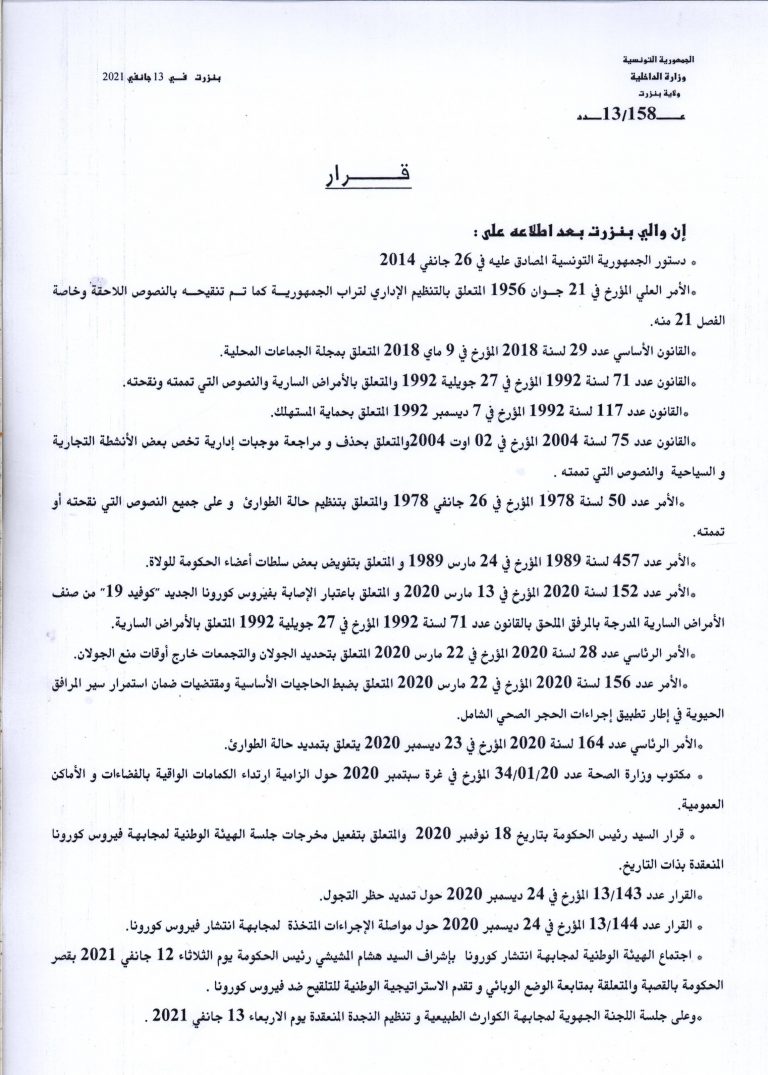 الجمهورية التونسية
وزارة الداخلية
ولاية بنزرت
عـــ13/158ـــدد
بنزرت في 13 جانفي 2021
قـــــرار
إن والي بنزرت بعد اطلاعه على :
• دستور الجمهورية التونسية المصادق عليه في 26 جانفي 2014
•الأمر العلي المؤرخ في 21 جوان 1956 المتعلق بالتنظيم الإداري لتراب الجمهورية كما تم تنقيحه بالنصوص اللاحقة وخاصة
الفصل 21 منه.
•القانون الأساسي عدد 29 لسنة 2018 المؤرخ في 9 ماي 2018 المتعلق بمجلة الجماعات المحلية.
•القانون عدد 71 لسنة 1992 المؤرخ في 27 جويلية 1992 والمتعلق بالأمراض السارية والنصوص التي تممته ونقحته.
•القانون عدد 117 لسنة 1992 المؤرخ في 7 ديسمبر 1992 المتعلق بحماية المستهلك.
•القانون عدد 75 لسنة 2004 المؤرخ في 02 اوت 2004والمتعلق بحذف و مراجعة موجبات إدارية تخص بعض الأنشطة التجارية
و السياحية والنصوص التي تممته .
•الأمر عدد 50 لسنة 1978 المؤرخ في 26 جانفي 1978 والمتعلق بتنظيم حالة الطوارئ و على جميع النصوص التي نقحته أو
تممته.
•الأمر عدد 457 لسنة 1989 المؤرخ في 24 مارس 1989 و المتعلق بتفويض بعض سلطات أعضاء الحكومة للولاة.
•الأمر عدد 152 لسنة 2020 المؤرخ في 13 مارس 2020 و المتعلق باعتبار الإصابة بفيروس كورونا الجديد "كوفيد 19" من صنف
الأمراض السارية المدرجة بالمرفق الملحق بالقانون عدد 71 لسنة 1992 المؤرخ في 27 جويلية 1992 المتعلق بالأمراض السارية.
•الأمر الرئاسي عدد 28 لسنة 2020 المؤرخ في 22 مارس 2020 المتعلق بتحديد الجولان والتجمعات خارج أوقات منع الجولان.
•الأمر عدد 156 لسنة 2020 المؤرخ في 22 مارس 2020 المتعلق بضبط الحاجيات الأساسية ومقتضيات ضمان استمرار سير المرافق
الحيوية في إطار تطبيق إجراءات الحجر الصحي الشامل.
•الأمر الرئاسي عدد 164 لسنة 2020 المؤرخ في 23 ديسمبر 2020 يتعلق بتمديد حالة الطوارئ.
• مكتوب وزارة الصحة عدد 34/01/20 المؤرخ في غرة سبتمبر 2020 حول الزامية ارتداء الكمامات الواقية بالفضاءات و الأماكن
العمومية.
• قرار السيد رئيس الحكومة بتاريخ 18 نوفمبر 2020 والمتعلق بتفعيل مخرجات جلسة الهيئة الوطنية لمجابهة فيروس كورونا
المنعقدة بذات التاريخ.
•القرار عدد 13/143 المؤرخ في 24 ديسمبر 2020 حول تمديد حظر التجول.
• القرار عدد 13/144 المؤرخ في 24 ديسمبر 2020 حول مواصلة الإجراءات المتخذة لمجابهة انتشار فيروس كورونا.
• اجتماع الهيئة الوطنية لمجابهة انتشار كورونا بإشراف السيد هشام المشيشي رئيس الحكومة يوم الثلاثاء 12 جانفي 2021 بقصر
الحكومة بالقصبة والمتعلقة بمتابعة الوضع الوبائي و تقدم الاستراتيجية الوطنية للتلقيح ضد فيروس كورونا .
•وعلى جلسة اللجنة الجهوية لمجابهة الكوارث الطبيعية و تنظيم النجدة المنعقدة يوم الاربعاء 13 جانفي 2021 .